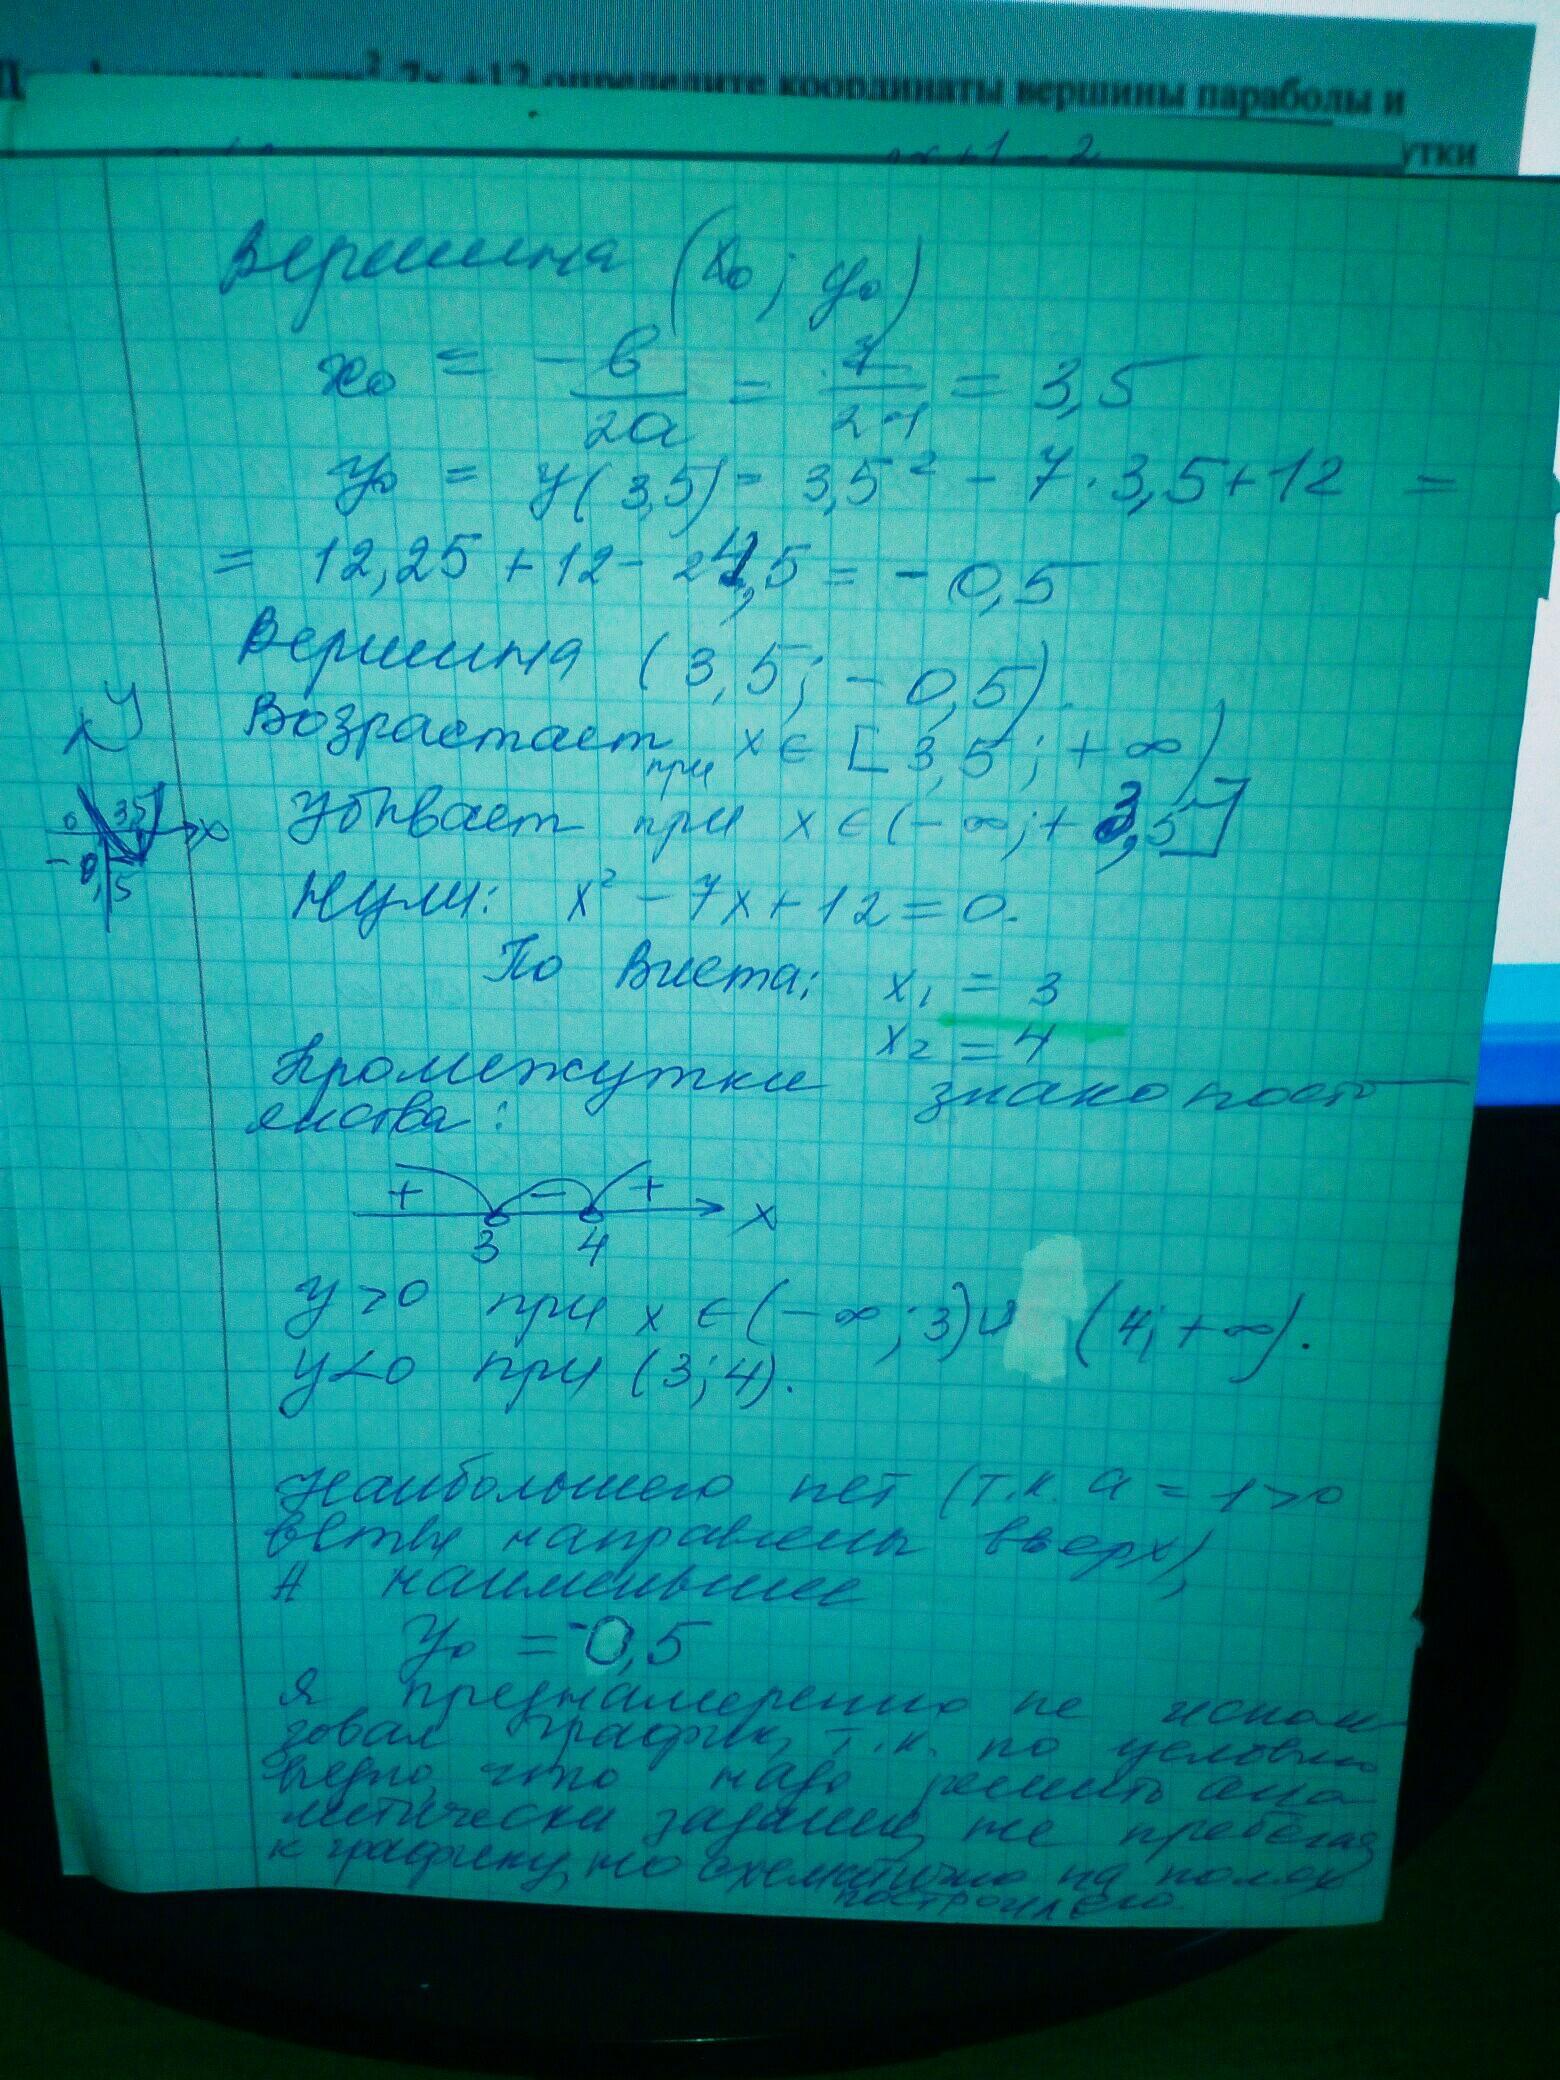 -7x +12 определите координаты вершины параболы и
утки
x+1-2
Вершина (x₀; y₀)
x₀ = -b/2a = 7/2·1 = 3,5
y₀ = y(3,5) = 3,5² - 7·3,5+12 =
= 12,25 + 12 - 24,5 = -0,5
Вершина (3,5; -0,5).
Возрастает при x ∈ [3,5; +∞)
Убывает при x ∈ (-∞; + 3,5]
y
0 3,5 x
-0,5
Нули: x² - 7x + 12 = 0.
По Виета: x₁ = 3
x₂ = 4
Промежутки знакопосто
янства:
+ - + x
3 4
y>0 при x ∈ (-∞; 3) ∪ (4; +∞).
y<0 при (3; 4).
Наибольшего нет (т.к. a = 1>0
ветви направлены вверх),
А наименьшее
y₀ = -0,5
Я преднамеренно не исполь-
зовал график, т.к. по условию
видно, что надо решить ана-
литически задание, не прибегая
к графику, но схематично на полях
построил его.